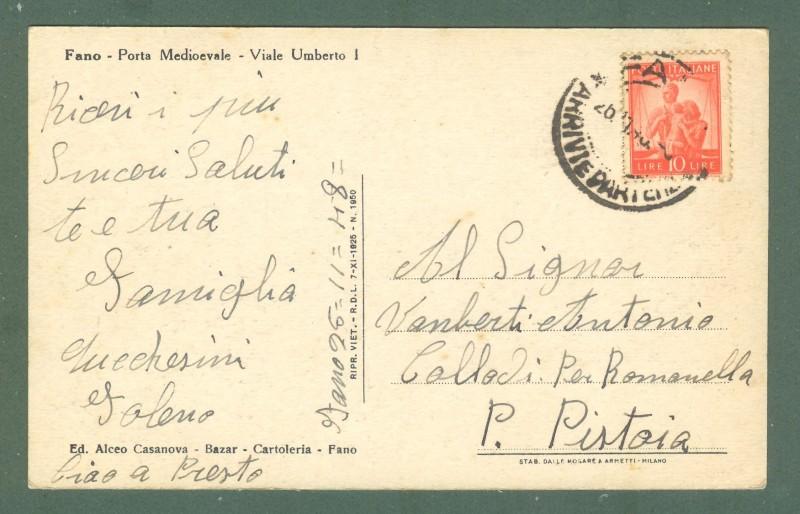 Fano - Porta Medioevale - Viale Umberto I
Ricevi i più
Sinceri Saluti
te e tua
Famiglia
Lucchesini
Ciao a Presto
Ed. Alceo Casanova - Bazar - Cartoleria - Fano
Fano 26=11=48=
RIPR. VIET. - R.D.L. 7-XI-1925 - N. 1950
ITALIANE
LIRE 10 LIRE
ARRIVI E PARTENZE
Al Signor
Vanberti Antonio
Collodi. Per Romanella
P. Pistoia
STAB. DALLE NOGARE & ARMETTI - MILANO